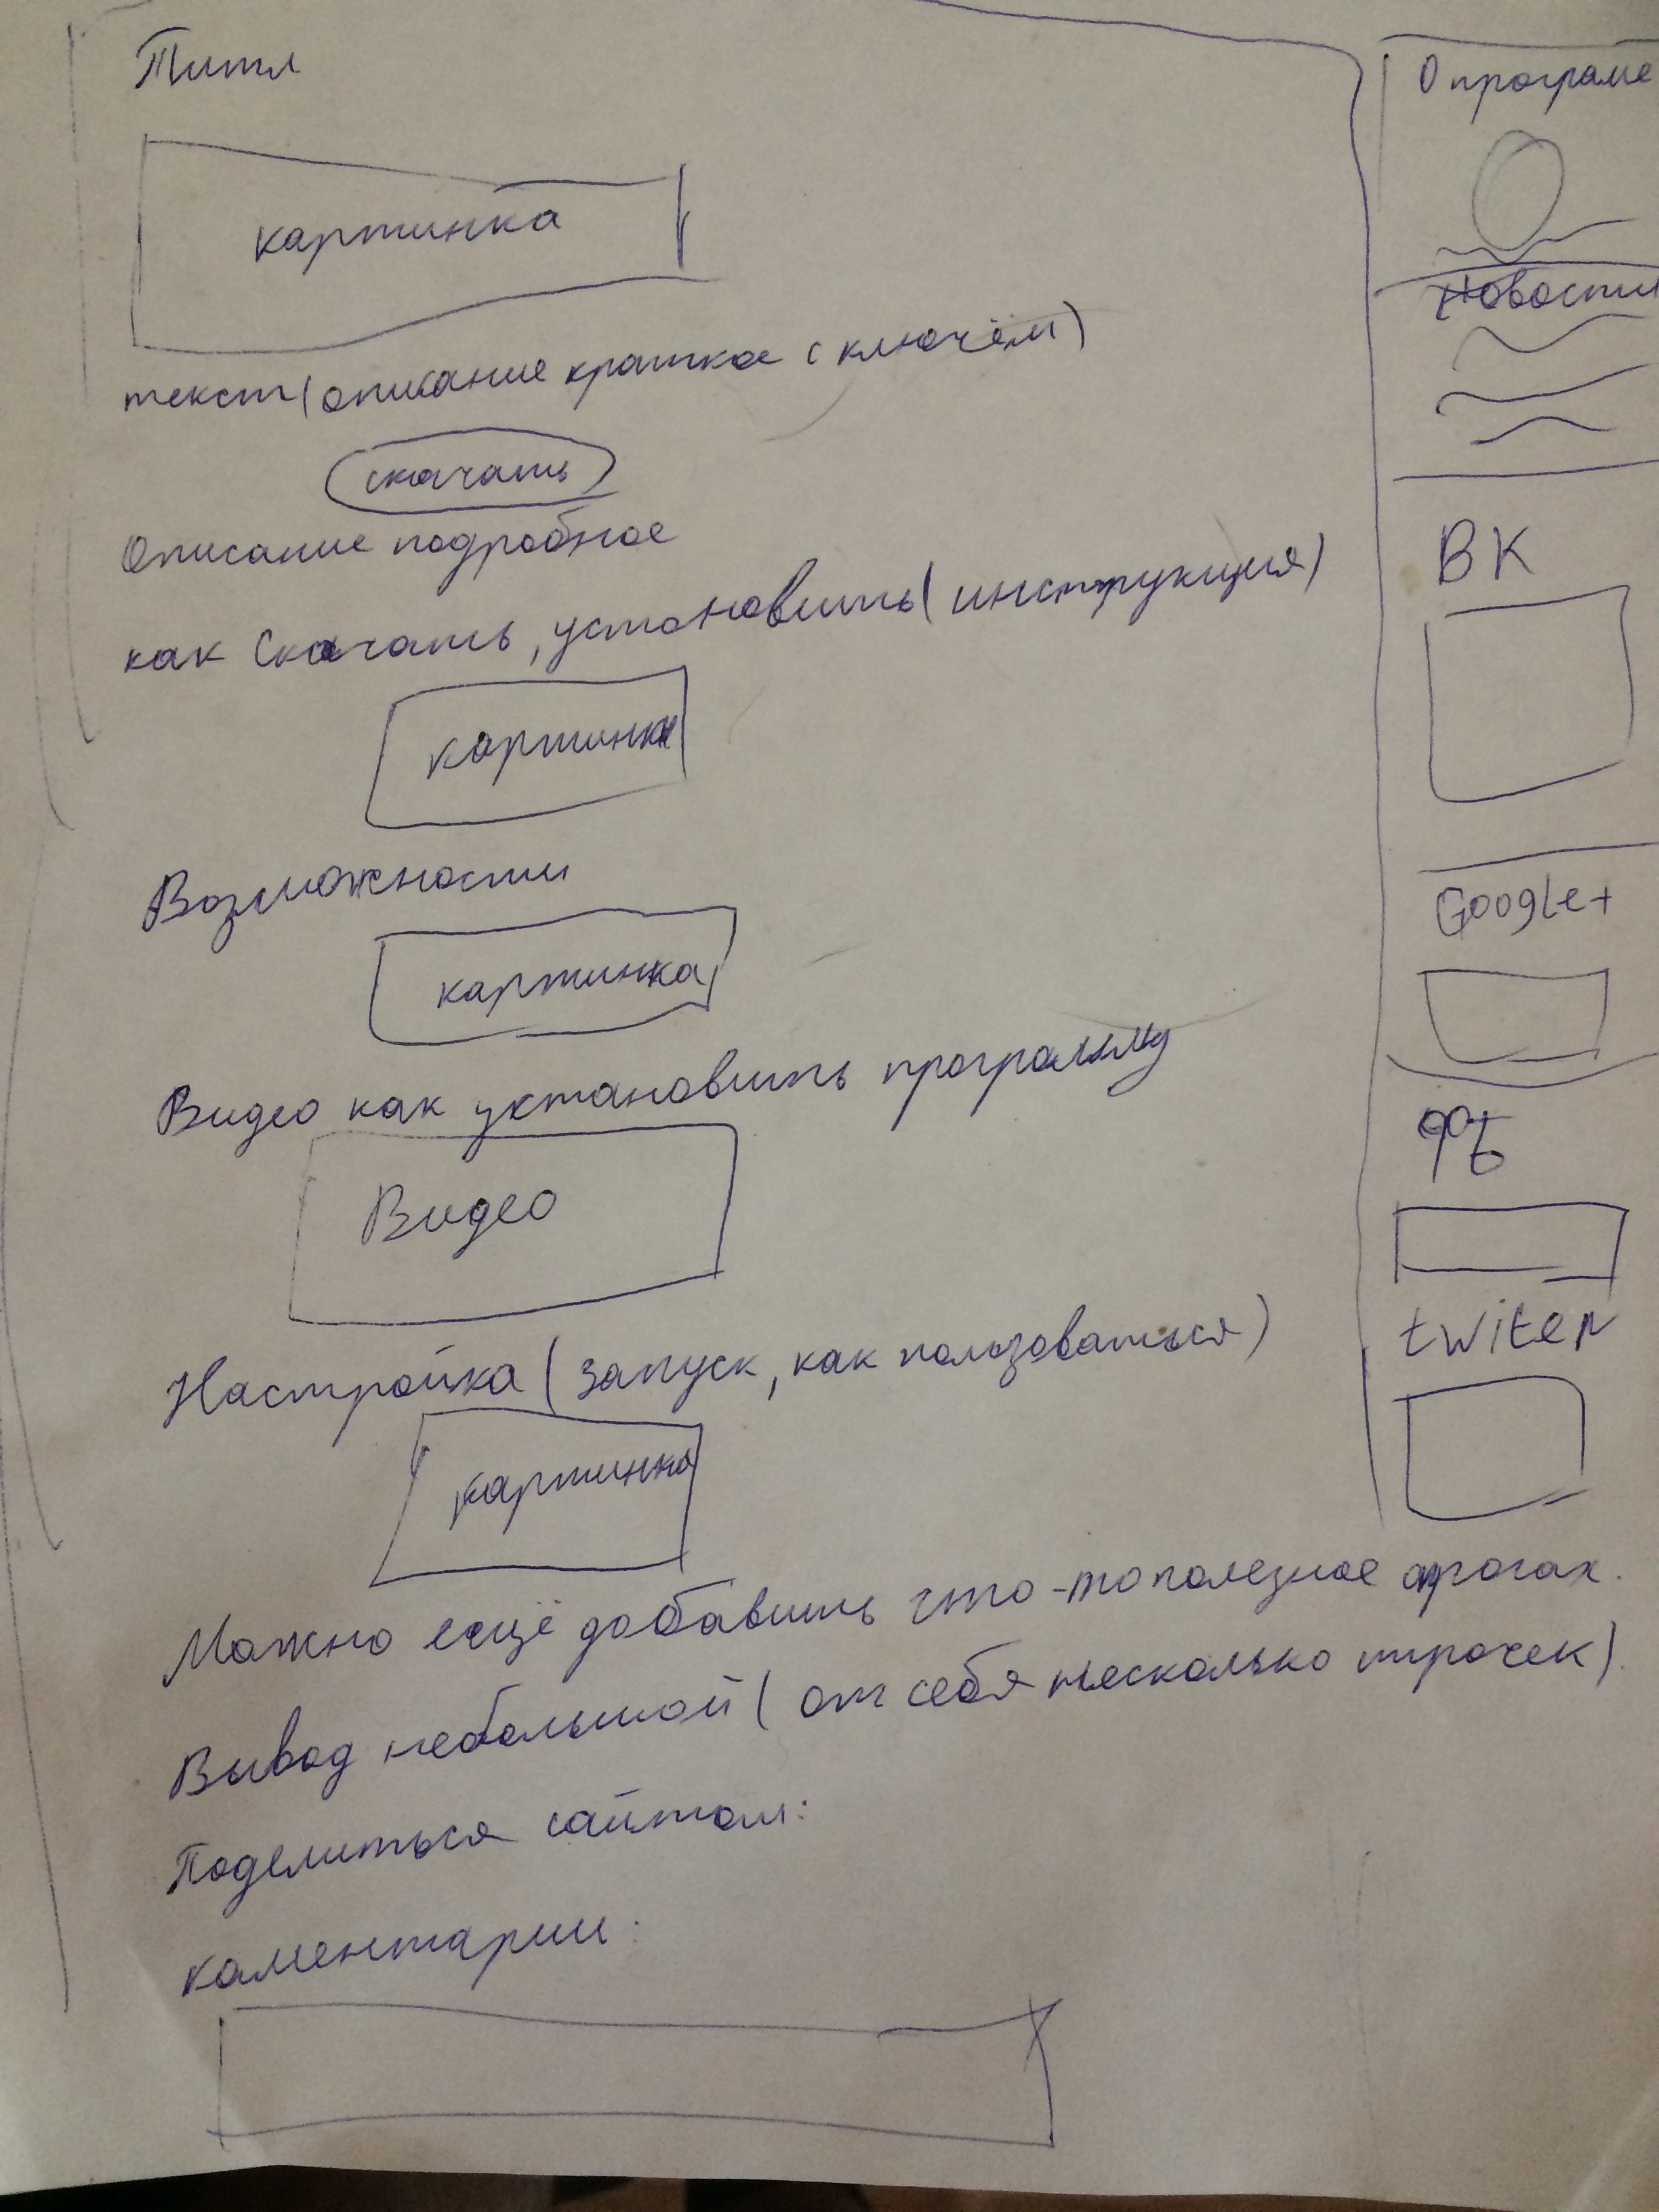 Титл
картинка
текст(описание краткое с ключём)
скачать
Описание подробное
как скачать, установить(инструкция)
картинка
Возможности
картинка
Видео как установить программу
Видео
Настройка(запуск, как пользоваться)
картинка
Можно ещё добавить что-то полезное о прогах.
Вывод небольшой(от себя несколько строчек).
Поделиться сайтом:
коментарии:
О програме
Новости
ВК
Google+
twiter